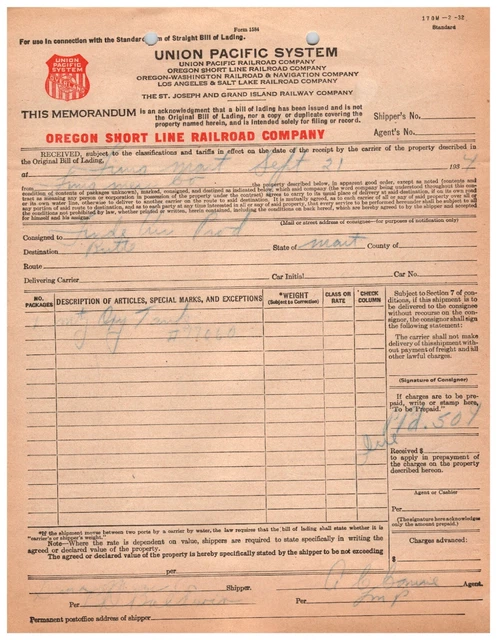 Form 1584
170M—7-32
For use in connection with the Standard Form of Straight Bill of Lading.
Standard
UNION
PACIFIC
SYSTEM
UNION PACIFIC SYSTEM
UNION PACIFIC RAILROAD COMPANY
OREGON SHORT LINE RAILROAD COMPANY
OREGON-WASHINGTON RAILROAD & NAVIGATION COMPANY
LOS ANGELES & SALT LAKE RAILROAD COMPANY
THE ST. JOSEPH AND GRAND ISLAND RAILWAY COMPANY
THIS MEMORANDUM is an acknowledgment that a bill of lading has been issued and is not the Original Bill of Lading, nor a copy or duplicate covering the property named herein, and is intended solely for filing or record.
Shipper's No.
Agent's No.
OREGON SHORT LINE RAILROAD COMPANY
RECEIVED, subject to the classifications and tariffs in effect on the date of the receipt by the carrier of the property described in
the Original Bill of Lading,
at Sept 21 1934
from
the property described below, in apparent good order, except as noted (contents and
condition of contents of packages unknown), marked, consigned, and destined as indicated below, which said company (the word company being understood throughout this con-
tract as meaning any person or corporation in possession of the property under the contract) agrees to carry to its usual place of delivery at said destination, if on its own road
or its own water line, otherwise to deliver to another carrier on the route to said destination. It is mutually agreed, as to each carrier of all or any of said property over all or
any portion of said route to destination, and as to each party at any time interested in all or any of said property, that every service to be performed hereunder shall be subject to all
the conditions not prohibited by law, whether printed or written, herein contained, including the conditions on back hereof, which are hereby agreed to by the shipper and accepted
for himself and his assigns.
(Mail or street address of consignee—for purposes of notification only)
Consigned to Prod
Destination Butte State of mont County of
Route
Delivering Carrier Car Initial Car No.
NO. PACKAGES
DESCRIPTION OF ARTICLES, SPECIAL MARKS, AND EXCEPTIONS
*WEIGHT (Subject to Correction)
CLASS OR RATE
CHECK COLUMN
Subject to Section 7 of
conditions, if this shipment is to
be delivered to the consignee
without recourse on the con-
signor, the consignor shall sign
the following statement:
The carrier shall not make
delivery of this shipment with-
out payment of freight and all
other lawful charges.
(Signature of Consignor)
If charges are to be pre-
paid, write or stamp here,
"To be Prepaid."
Received $
to apply in prepayment of
the charges on the property
described hereon.
Agent or Cashier
Per
(The signature here acknowledges
only the amount prepaid.)
Charges advanced:
$
*If the shipment moves between two ports by a carrier by water, the law requires that the bill of lading shall state whether it is
"carrier's or shipper's weight."
Note—Where the rate is dependent on value, shippers are required to state specifically in writing the
agreed or declared value of the property.
The agreed or declared value of the property is hereby specifically stated by the shipper to be not exceeding
per
Shipper.
Agent.
Per
Per
Permanent postoffice address of shipper